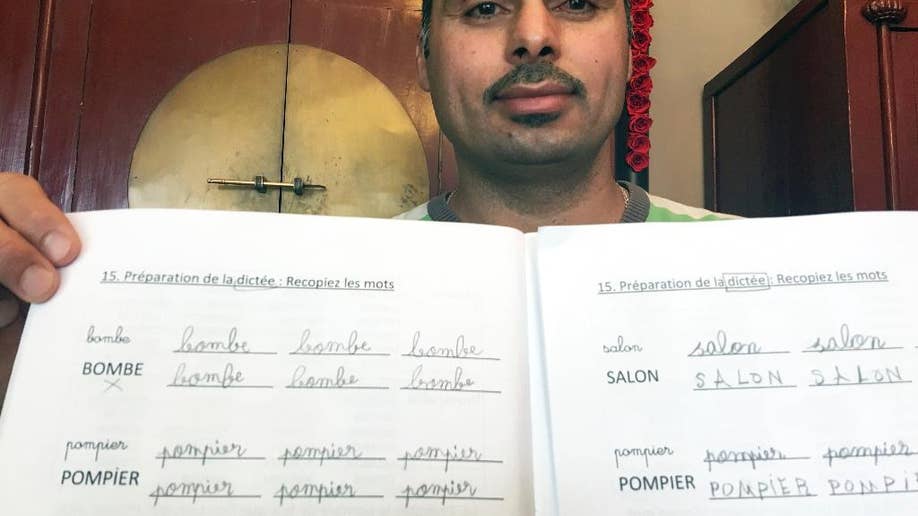 15. Préparation de la dictée : Recopiez les mots
bombe bombe bombe bombe
BOMBE bombe bombe bombe
pompier pompier pompier pompier
POMPİER pompier pompier pompier
15. Préparation de la dictée : Recopiez les mots
salon salon salon
SALON SALON SALON
pompier pompier pompier
POMPIER POMPIER POMPI